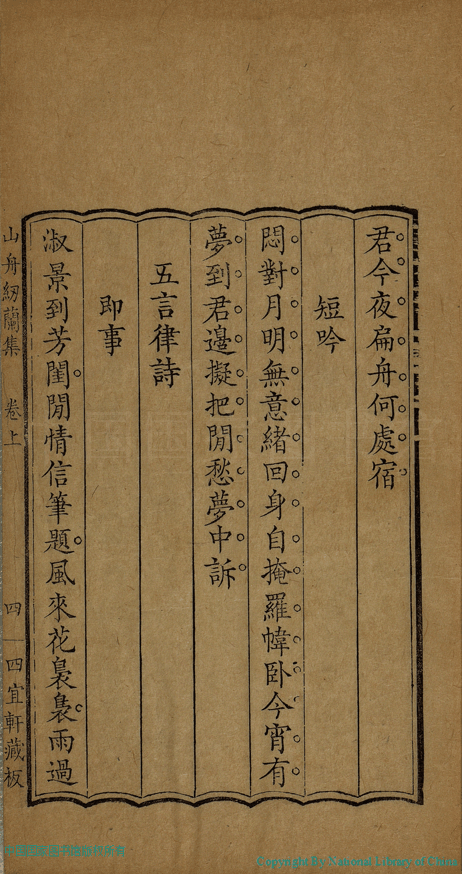 君今夜扁舟何處宿
短吟
悶對月明無意緒回身自掩羅幃卧今宵有
夢到君邊擬把閒愁夢中訴
五言律詩
即事
淑景到芳閨閒情信筆題風來花裊裊雨過
山舟紉蘭集 卷上 四 四宜軒藏板
Copyright By National Library of China